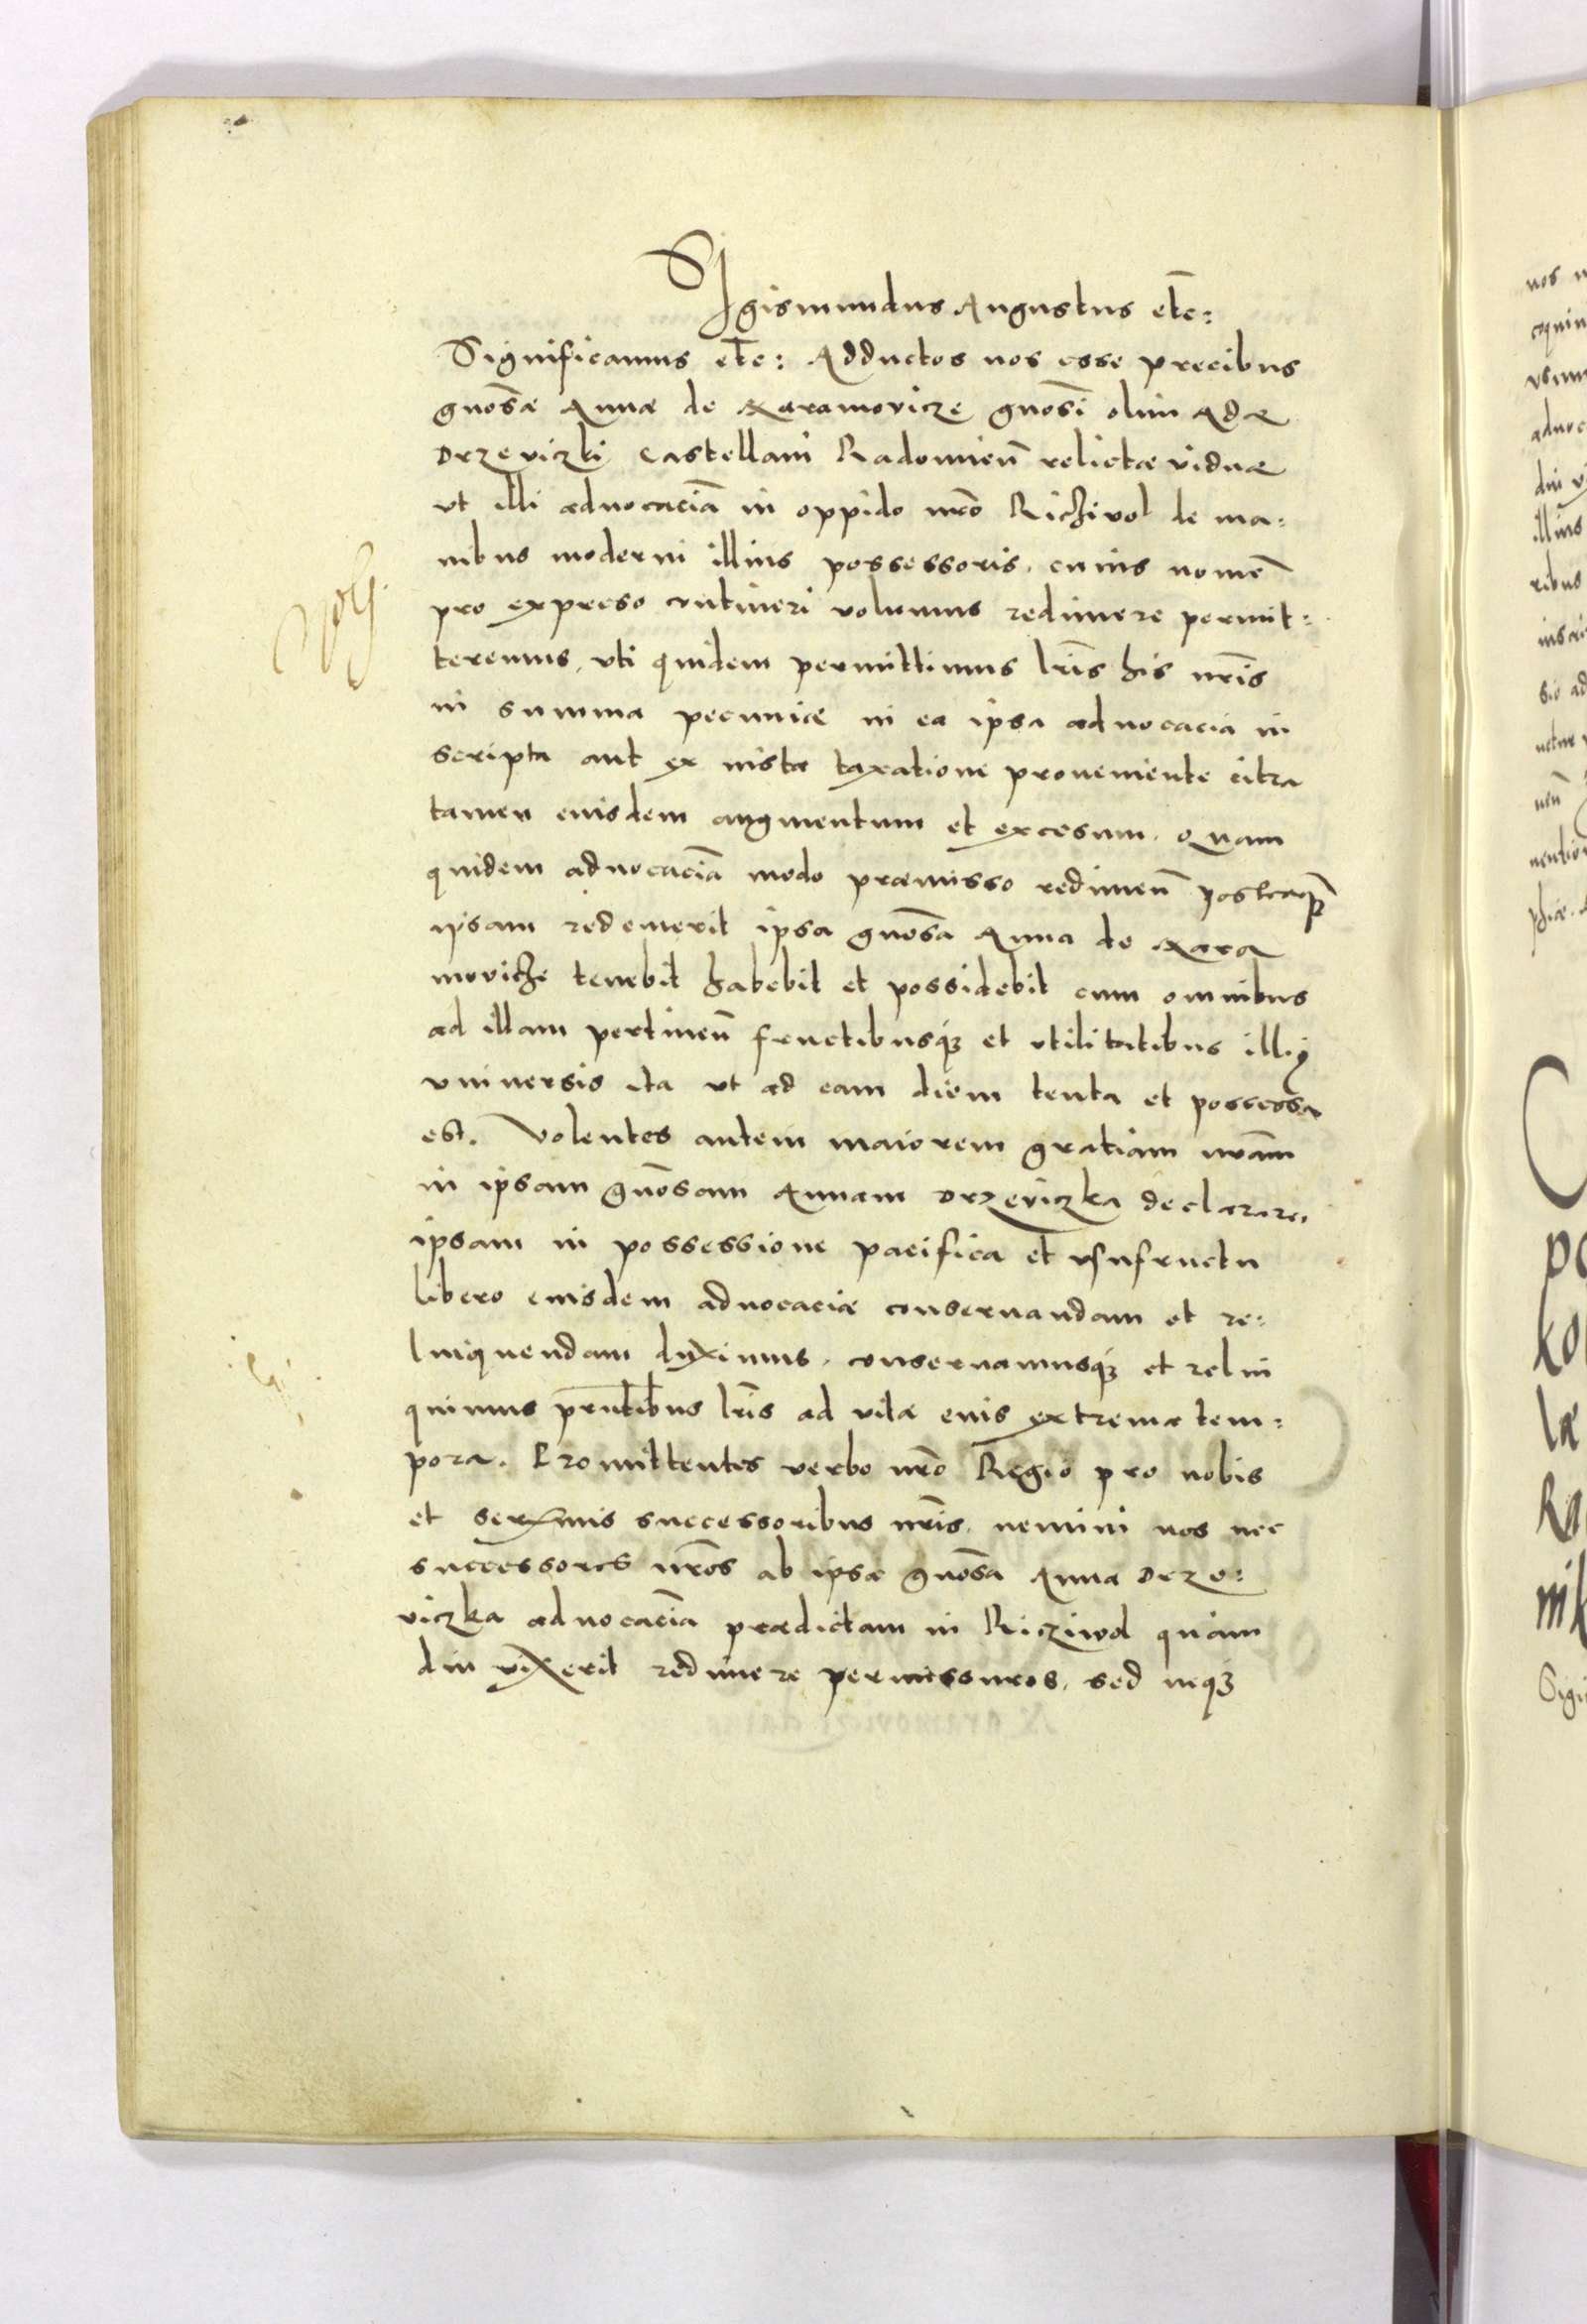 Sigismundus Augustus etc̄:
Significamus etc̄: Adductos nos esse precibus
gnōsæ Annæ de Xaramovicze gnōsi olim Adæ
Drzeviczki Castellani Radomieñ relictæ viduæ
ut illi advocaciā in oppido nrō Riczivol de ma=
nibus moderni illius possessoris, cuius nomē
pro expreso contineri volumus redimere permit=
teremus, uti quidem permittimus lrīs his nrīs
in summa pecuniæ in ea ipsa advocacia in
scripta aut ex iusta taxatione proveniente citra
tamen eiusdem augmentum et excesum. Quam
quidem advocaciā modo præmisso redimeñ posteaqȝ
ipsam redemerit ipsa gnōsa Anna de Xara
moviche tenebit habebit et possidebit cum omnibus
ad illam pertineñ fructibusqȝ et utilitatibus illiꝰ
universis ita ut ad eam diem tenta et possessa
est. Volentes autem maiorem gratiam nrām
in ipsam gnōsam Annam Drzeviczka declarare,
ipsam in possessione pacifica et usufructu
libero eiusdem advocaciæ conservandam et re=
linquendam duximus, conservamusqȝ et relin
quimus prn̄tibus lrīs ad vitæ eius extrema tem=
pora. Promittentes verbo nrō Regio pro nobis
et serx̄mis successoribus nrīs, nemini nos nec
successores nrōs ab ipsa gnōsa Anna Drze=
viczka advocaciā prædictam in Ricziwol quam
diu vixerit redimere permissuros, sed neqȝ